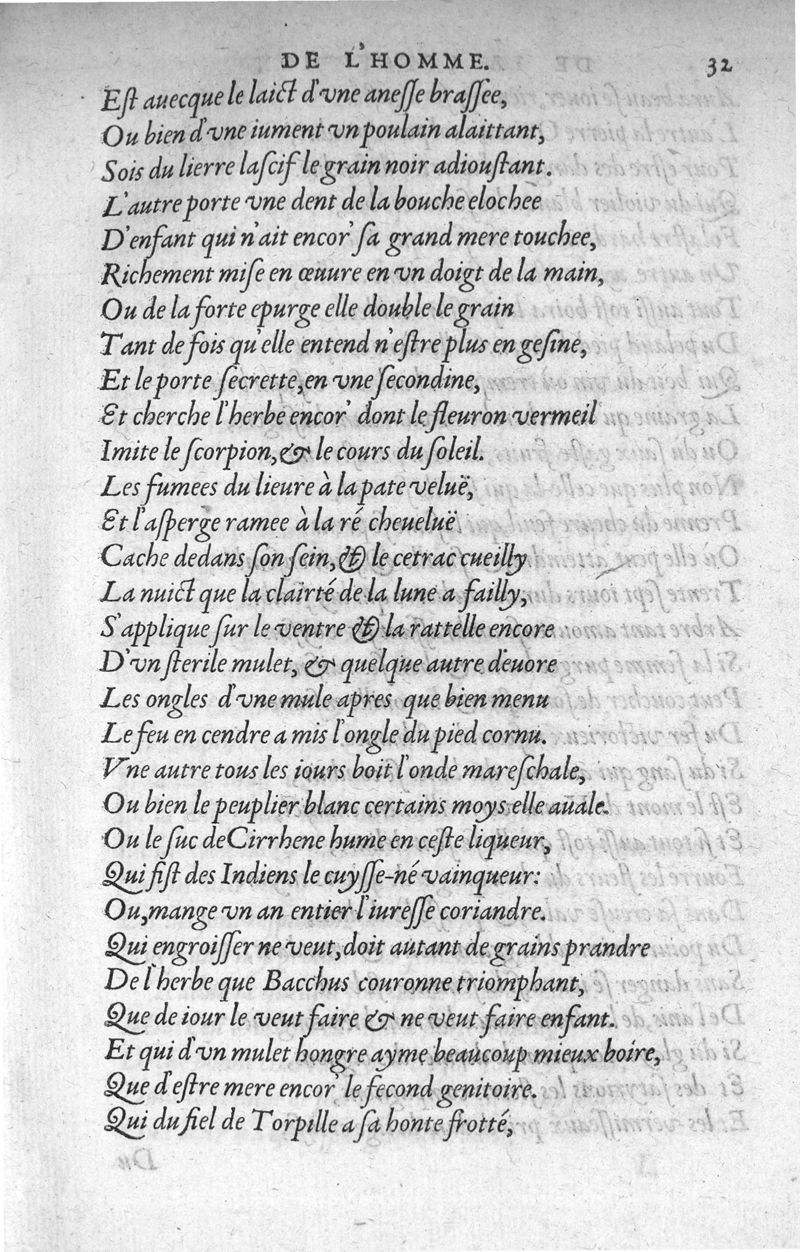 DE L'HOMME. 32
Eſt auecque le laict d'vne aneſſe braſſee,
Ou bien d'vne iument vn poulain alaittant,
Sois du lierre laſcif le grain noir adiouſtant.
L'autre porte vne dent de la bouche elochee
D'enfant qui n'ait encor' ſa grand mere touchee,
Richement miſe en œuure en vn doigt de la main,
Ou de la forte epurge elle double le grain
Tant de fois qu'elle entend n'eſtre plus en geſine,
Et le porte ſecrette, en vne ſecondine,
Et cherche l'herbe encor' dont le fleuron vermeil
Imite le ſcorpion, & le cours du ſoleil.
Les fumees du lieure à la pate veluë,
Et l'aſperge ramee à la ré cheueluë
Cache dedans ſon ſein, & le cetrac cueilly
La nuict que la clairté de la lune a failly,
S'applique ſur le ventre & la rattelle encore
D'vn ſterile mulet, & quelque autre deuore
Les ongles d'vne mule apres que bien menu
Le feu en cendre a mis l'ongle du pied cornu.
Vne autre tous les iours boit l'onde mareſchale,
Ou bien le peuplier blanc certains moys elle auale.
Ou le ſuc de Cirrhene hume en ceſte liqueur,
Qui fiſt des Indiens le cuyſſe-né vainqueur:
Ou, mange vn an entier l'iureſſe coriandre.
Qui engroiſſer ne veut, doit autant de grains prandre
De l'herbe que Bacchus couronne triomphant,
Que de iour le veut faire & ne veut faire enfant.
Et qui d'vn mulet hongre ayme beaucoup mieux boire,
Que d'eſtre mere encor' le fecond genitoire.
Qui du fiel de Torpille a ſa honte frotté,
Du